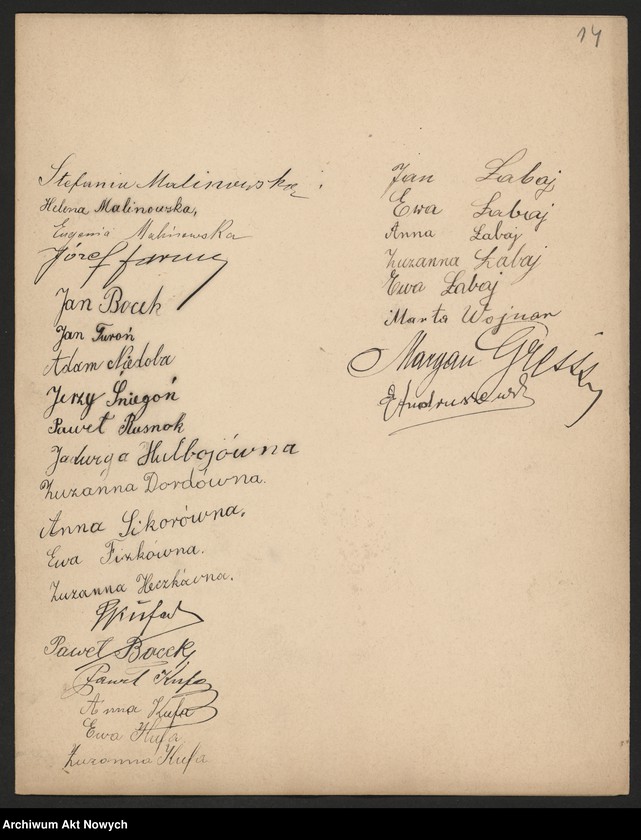 14
Stefania Malinowska
Helena Malinowska,
Eugenia Malinowska
Józef
Jan Bocek
Jan Turoń
Adam Niedoba
Jerzy Śniegoń
Paweł Rusnok
Jadwiga Hulbojówna
Zuzanna Dordówna.
Anna Sikorówna.
Ewa Fizkówna.
Zuzanna Heczkówna.
Paweł Bocek
Paweł Kufa
Anna Kufa
Ewa Kufa
Zuzanna Kufa
Jan Łabaj
Ewa Łabaj
Anna Łabaj
Zuzanna Łabaj
Ewa Łabaj
Marta Wojnar
Archiwum Akt Nowych